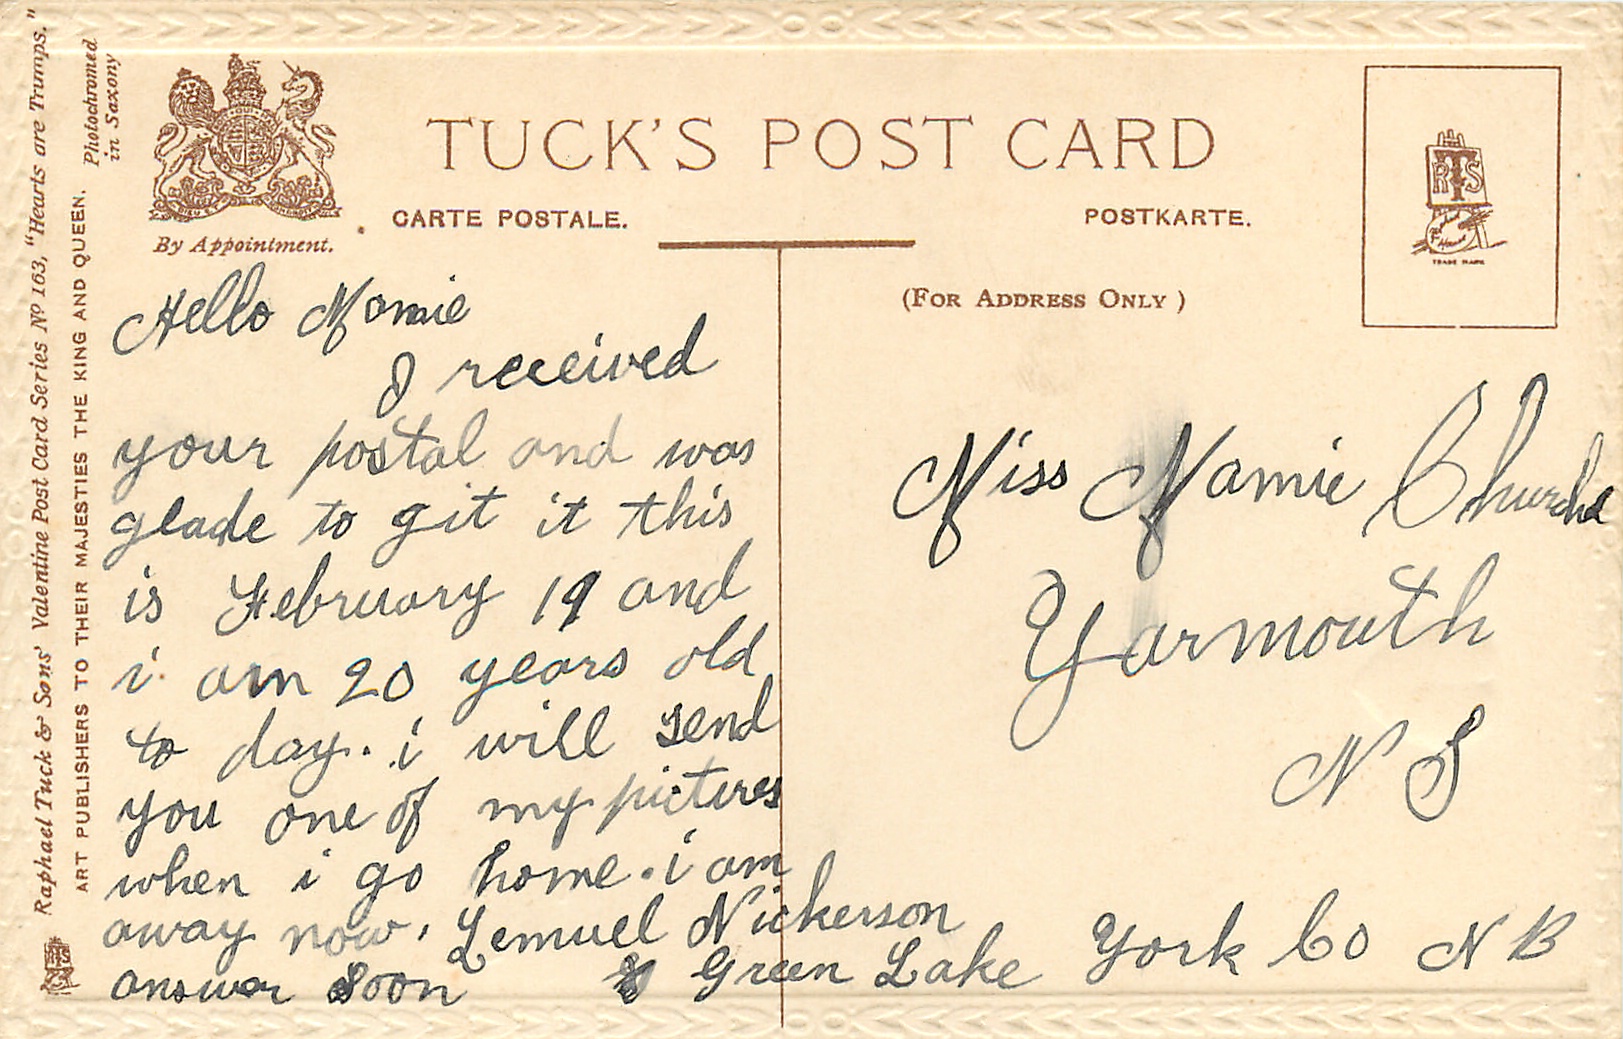 Raphael Tuck & Sons' Valentine Post Card Series Nº 163, "Hearts are Trumps."
ART PUBLISHERS TO THEIR MAJESTIES THE KING AND QUEEN.
Photochromed
in Saxony
By Appointment.
TUCK'S POST CARD
CARTE POSTALE.
POSTKARTE.
(FOR ADDRESS ONLY)
RTS
TRADE MARK
Hello Mamie
I received
your postal and was
glade to git it this
is February 19 and
i am 20 years old
to day. i will send
you one of my pictires
when i go home. i am
away now. Lemuel Nickerson
answer Soon Green Lake York Co N B
Miss Mamie
Yarmouth
N S